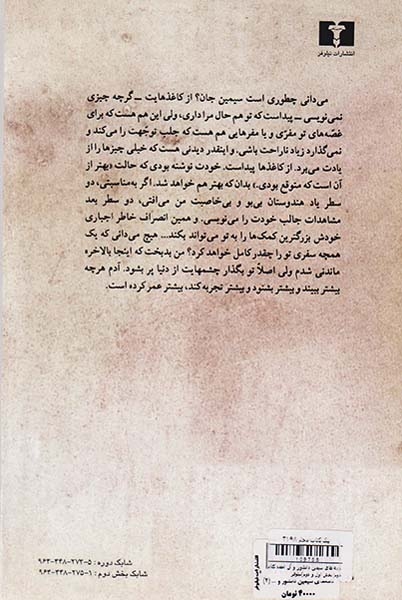 انتشارات نیلوفر
می‌دانی چطوری است سیمین جان؟ از کاغذهایت ــ گرچه چیزی
نمی‌نویسی ــ پیداست که تو هم حال مرا داری، ولی این هم هست که برای
غصه‌های تو مفرّی و یا مفرهایی هم هست که جلب توجّهت را می‌کند و
نمی‌گذارد زیاد ناراحت باشی. و اینقدر دیدنی هست که خیلی چیزها را از
یادت می‌برد. از کاغذها پیداست. خودت نوشته بودی که حالت «بهتر از
آن است که متوقع بودی.» بدان که بهتر هم خواهد شد. اگر به‌مناسبتی، دو
سطر یاد هندوستان بی‌بو و بی‌خاصیت من می‌افتی، دو سطر بعد
مشاهدات جالب خودت را می‌نویسی. و همین انصراف خاطر اجباری
خودش بزرگترین کمک‌ها را به تو می‌تواند بکند... هیچ می‌دانی که یک
همچه سفری تو را چقدر کامل خواهد کرد؟ من بدبخت که اینجا بالاخره
ماندنی شدم ولی اصلاً تو بگذار چشمهایت از دنیا پر بشود. آدم هرچه
بیشتر ببیند و بیشتر بشنود و بیشتر تجربه کند، بیشتر عمر کرده است.
شابک دوره : ۵-۲۷۲-۴۴۸-۹۶۴
شابک بخش دوم : ۱-۲۷۵-۴۴۸-۹۶۴
۴۰۰۰۰ تومان